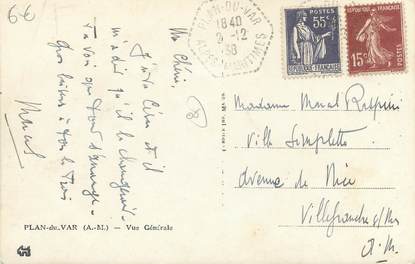 6€
PLAN-DU-VAR
1840
2-12
38
ALPES MARITIMES
55c POSTES
REPUBLIQUE FRANÇAISE
POSTES
15c
Ma Chérie,
J'ai vu et il
m'a dit qu'il le changerait.
Tu vois que tout s'arrange.
Gros baisers à tous les trois
Marcel
8
Madame Marcel Respini
Villa Simplette
Avenue de Nice
Villefranche s/Mer
A.M.
PLAN-du-VAR (A.-M.) — Vue Générale